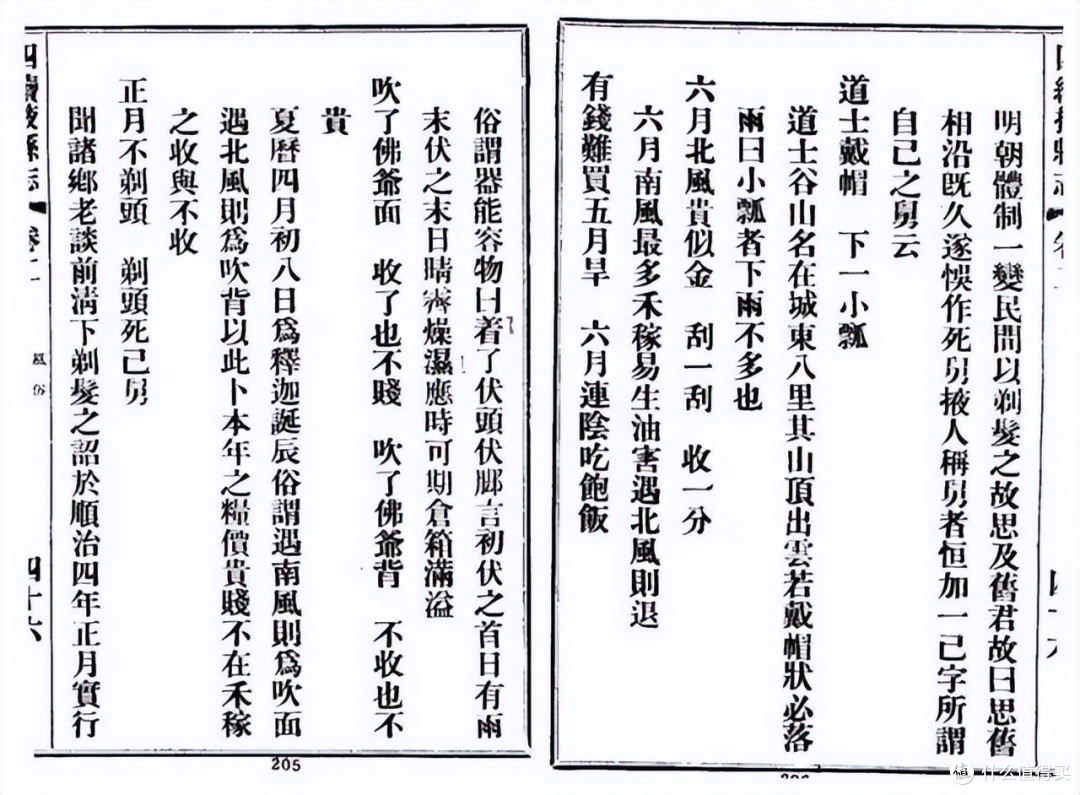 俗謂器能容物曰着了伏頭伏腳言初伏之首日有雨
末伏之末日晴霽燥濕應時可期倉箱滿溢
吹了佛爺面　收了也不賤　吹了佛爺背　不收也不
貴
夏曆四月初八日爲釋迦誕辰俗謂遇南風則爲吹面
遇北風則爲吹背以此卜本年之糧價貴賤不在禾稼
之收與不收
正月不剃頭　剃頭死己舅
聞諸鄉老談前淸下剃髮之詔於順治四年正月實行
四續掖縣志　卷二　風俗　四十六
205
明朝體制一變民間以剃髮之故思及舊君故曰思舊
相沿旣久遂悞作死舅掖人稱舅者恒加一己字所謂
自己之舅云
道士戴帽　下一小瓢
道士谷山名在城東八里其山頂出雲若戴帽狀必落
雨曰小瓢者下雨不多也
六月北風貴似金　刮一刮　收一分
六月南風最多禾稼易生油害遇北風則退
有錢難買五月旱　六月連陰吃飽飯
值 什么值得买